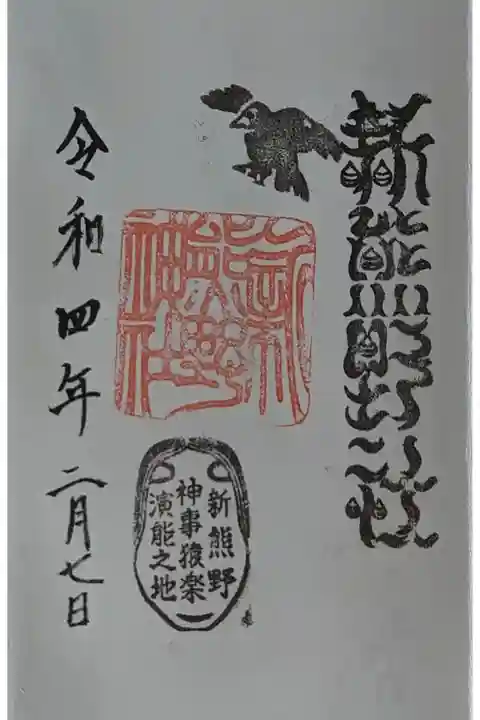 新熊野神社
新熊野神社
新熊野
神事猿楽
演能之地
令和四年二月七日